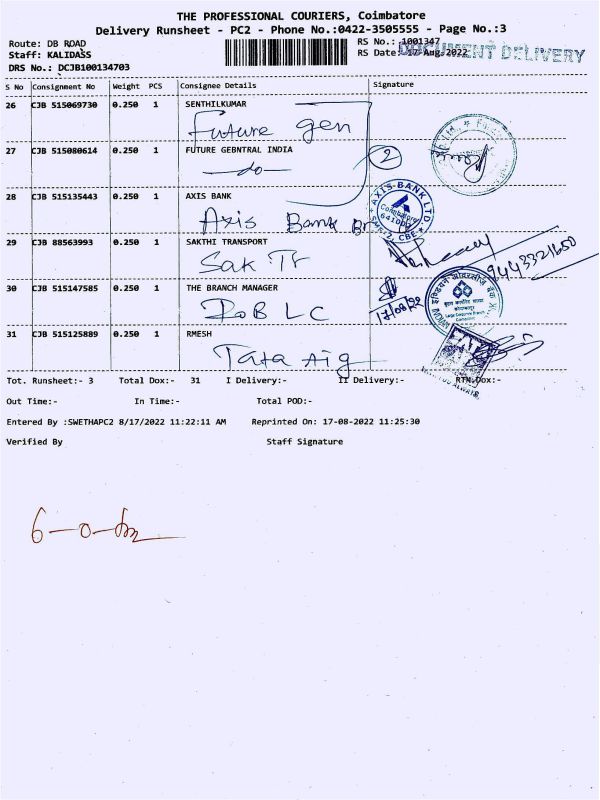 THE PROFESSIONAL COURIERS, Coimbatore
Delivery Runsheet - PC2 - Phone No.:0422-3505555 - Page No.:3
Route: DB ROAD
Staff: KALIDASS
DRS No.: DCJB100134703
RS No.: 1001347
RS Date: 17-Aug-2022
DOCUMENT DELIVERY
S No Consignment No Weight PCS Consignee Details Signature
26 CJB 515069730 0.250 1 SENTHILKUMAR
Future gen
27 CJB 515080614 0.250 1 FUTURE GEBNTRAL INDIA
-do-
2
28 CJB 515135443 0.250 1 AXIS BANK
Axis Bank Br
AXIS BANK LTD
Coimbatore
29 CJB 88563993 0.250 1 SAKTHI TRANSPORT
Sak Tr
9443321600
30 CJB 515147585 0.250 1 THE BRANCH MANAGER
IOB LC
17/08/22
31 CJB 515125889 0.250 1 RMESH
Tata Aig
Tot. Runsheet:- 3 Total Dox:- 31 I Delivery:- II Delivery:- RTN Dox:-
Out Time:- In Time:- Total POD:-
Entered By :SWETHAPC2 8/17/2022 11:22:11 AM Reprinted On: 17-08-2022 11:25:30
Verified By Staff Signature